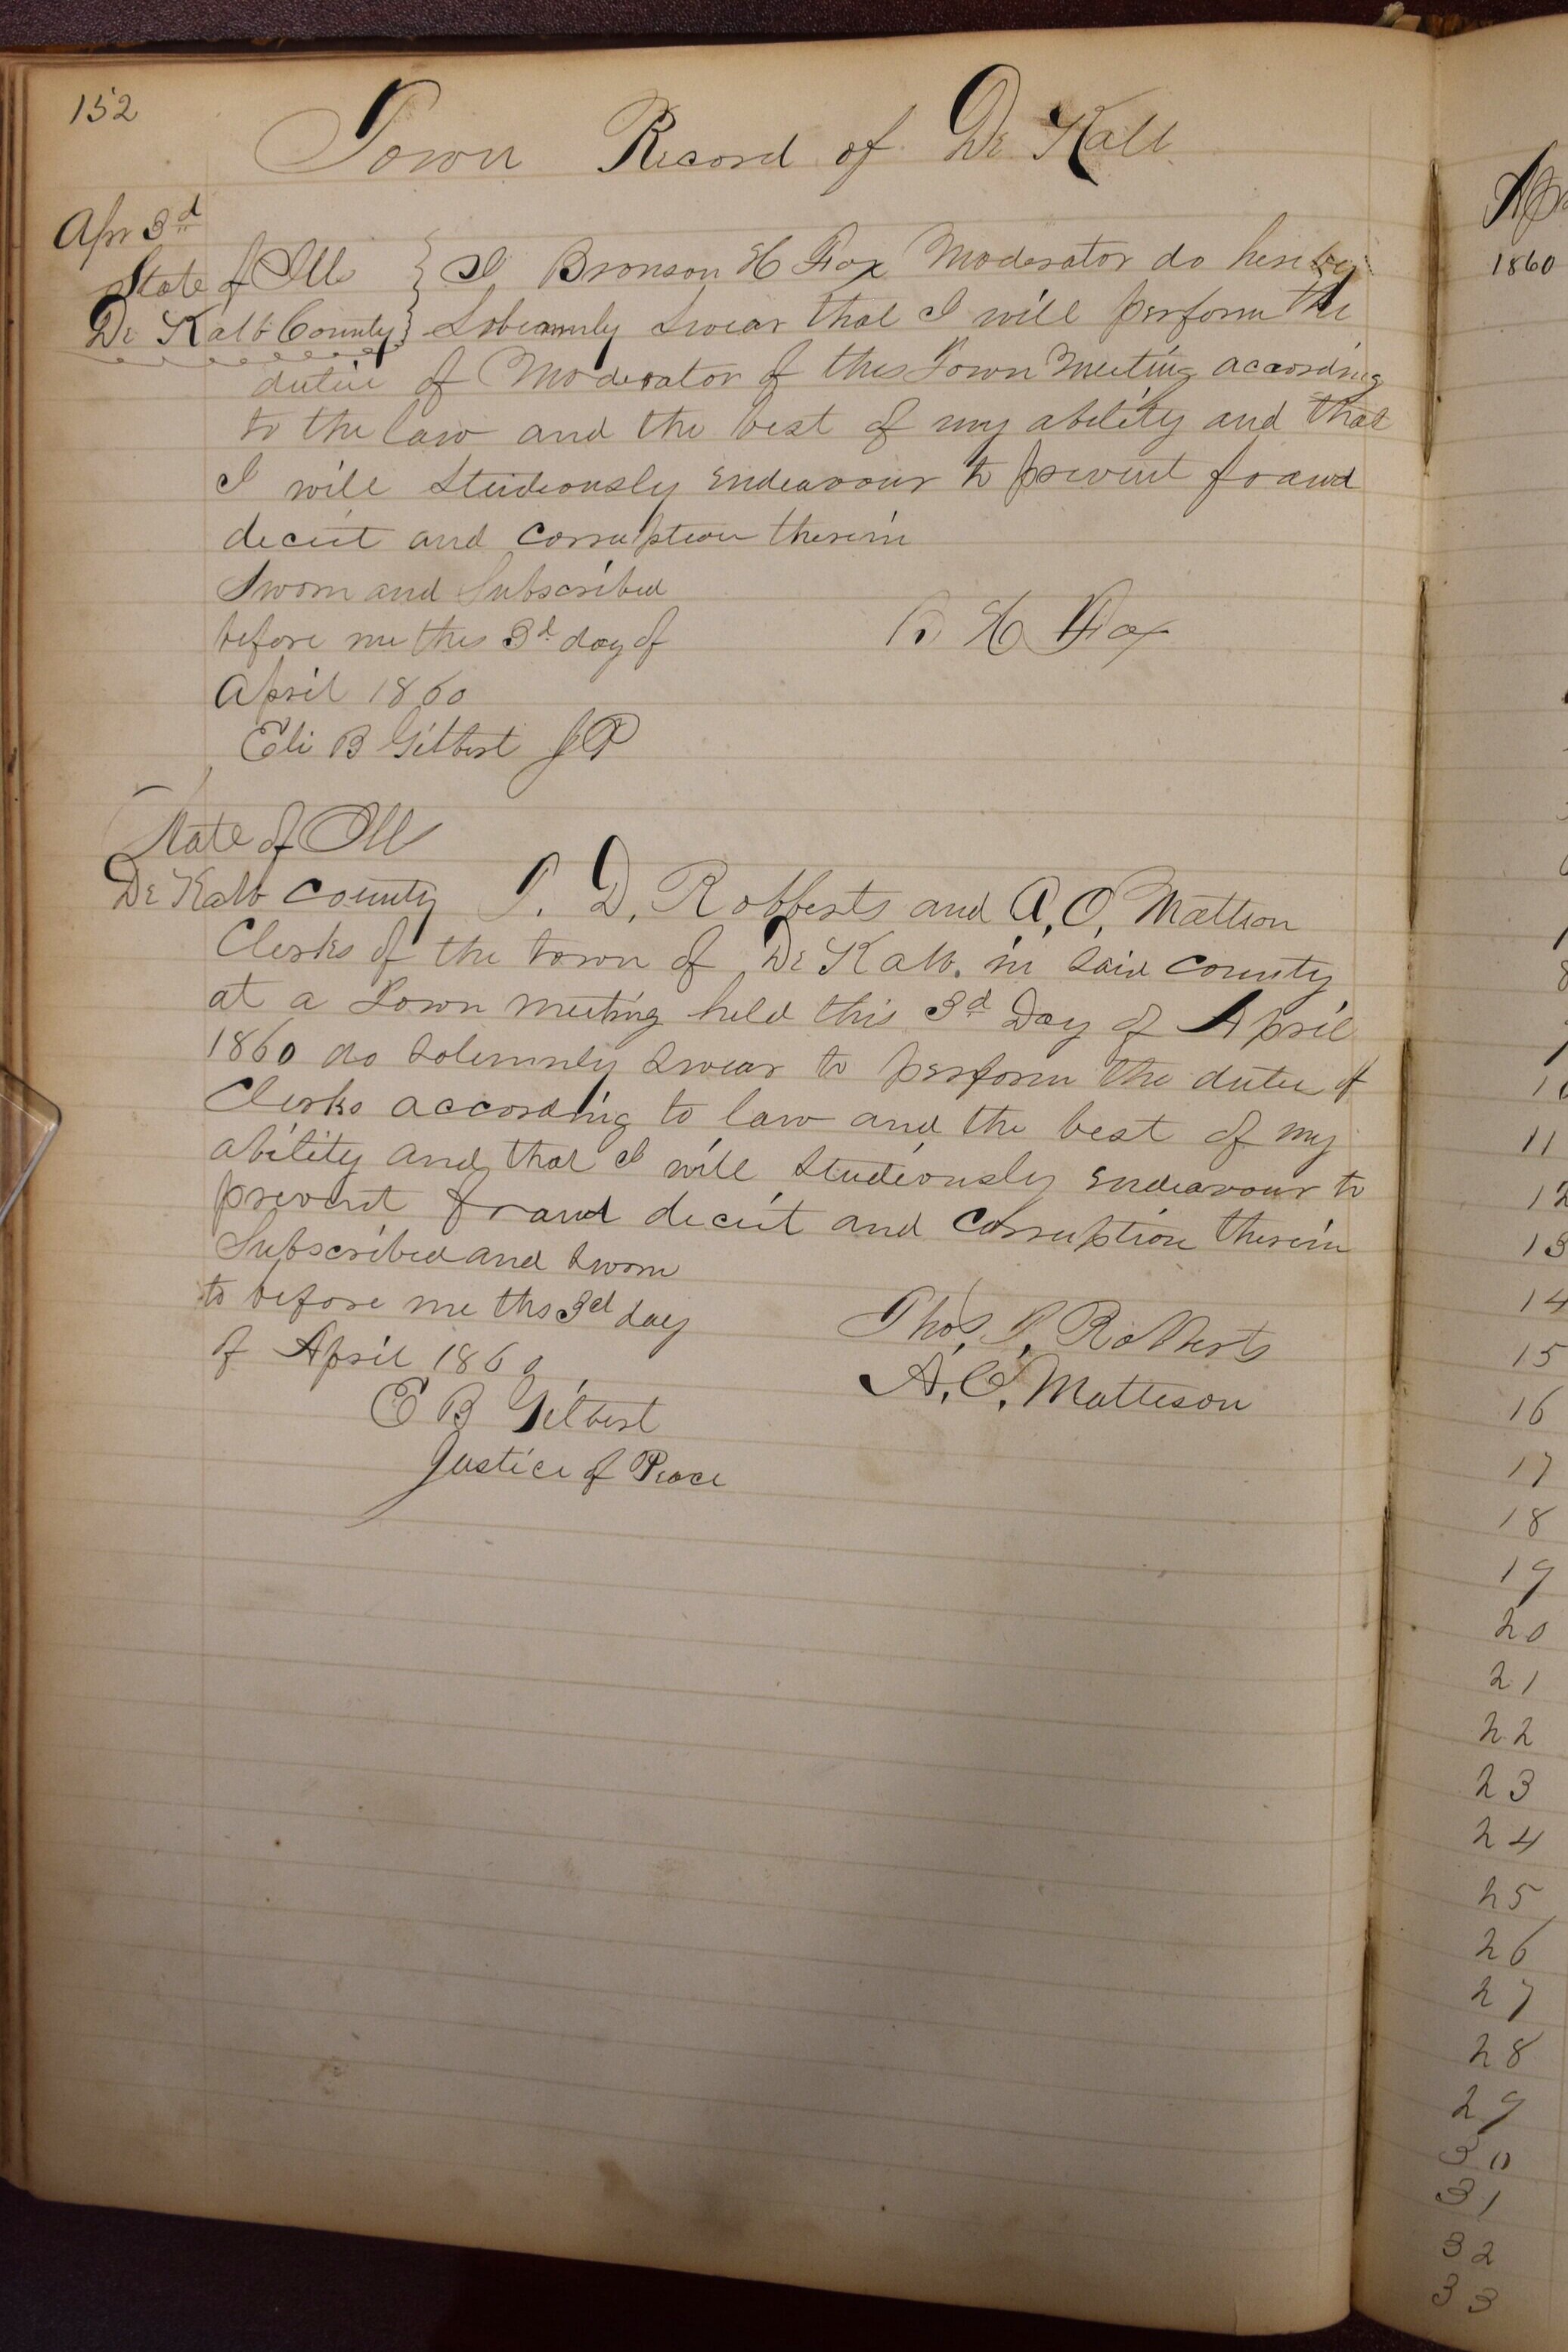 152
Town Record of De Kalb
Apr 3d
State of Ill } I Bronson H Fox Moderator do hereby
De Kalb County } Solemnly Swear that I will perform the
dutie of Moderator of this Town Meeting according
to the law and the best of my ability and that
I will Studiously endeavour to prevent fraud
deceit and corruption therein
Sworn and Subscribed
before me this 3d day of
B H Fox
April 1860
Eli B Gilbert JP
State of Ill
De Kalb County T. D. Robberts and A. O. Mattson
Clerks of the town of De Kalb. in Said County
at a Town meeting held this 3d Day of April
1860 do Solemnly Swear to perform the dutie of
Clerks according to law and the best of my
ability and that I will Studiously endeavour to
prevent fraud deceit and corruption therein
Subscribed and Sworn
to before me ths 3d day
of April 1860
Thos. Robberts
A. O. Matteson
E B Gilbert
Justice of Peace
1860
11
12
13
14
15
16
17
18
19
20
21
22
23
24
25
26
27
28
29
30
31
32
33